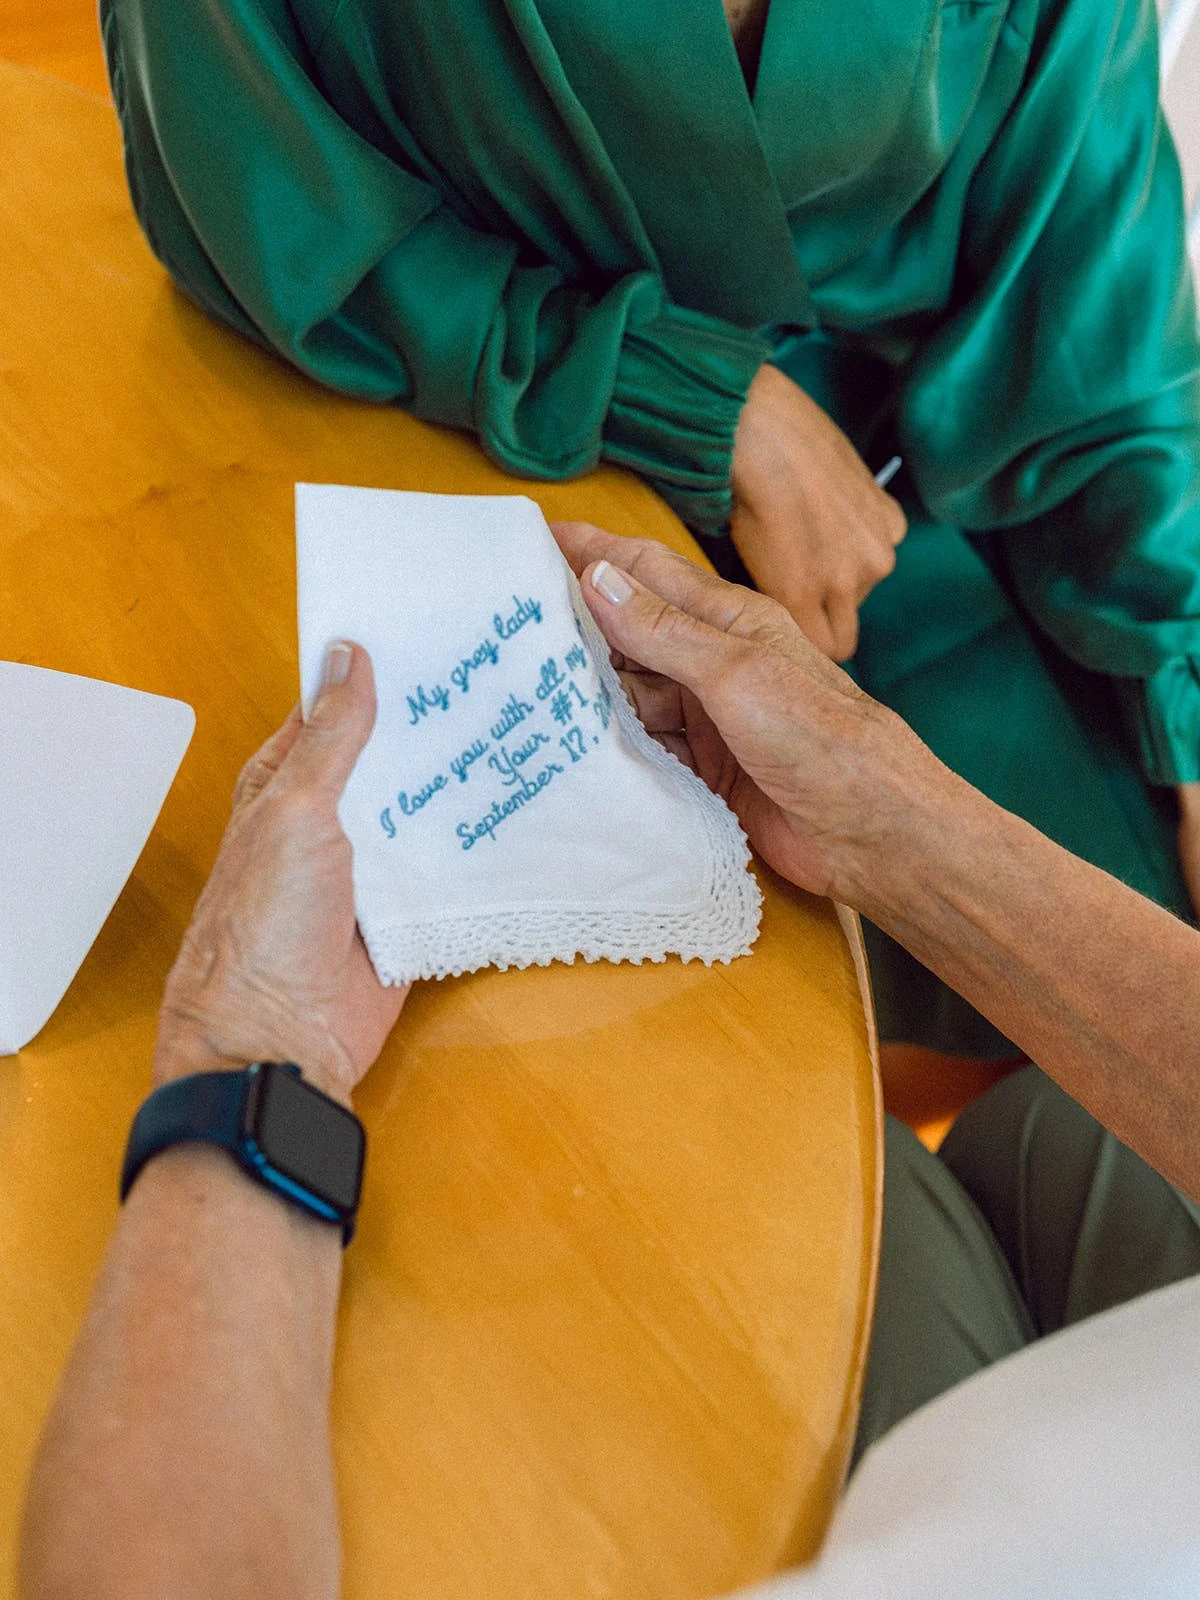 My grey lady
I love you with all my
Your #1
September 17,